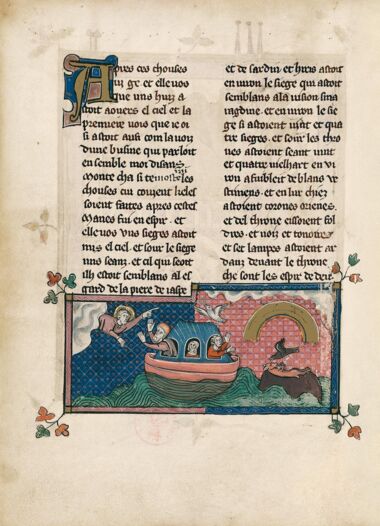 Apres ces chouses
vi ge et elle vos
que uns huiz a
stoit aovers el ciel et la
premiere vois que ie oi
si astoit ausi com la voiz
dune busine qui parloit
en semble moi disanz
monte cha si te mosterre les
chouses qui couient si des
soient faites apres cestes
manes fui en espir · et
elle vos uns sieges astoit
mis el ciel · et sour le siege
uns seanz · et cil qui seoit
ssi estoit semblans al es
gard de la piere de iaspe
et de sardin · et hireis astoit
en uiron le siege qui astoit
semblans a la uision sma
ragdine · et en uiron le sie
ge si astoient uint et qua
tre sieges · et sour les thro
nes astoient seant uint
et quatre vielhart en vi
ron afubleit de blans ve
stimens · et en lur chies
astoient corones orienes ·
et del throne eissoient fol
dres · et uoiz et tonoires
et set lampes astoient ar
danz deuant le throne
che sont les espir de deu